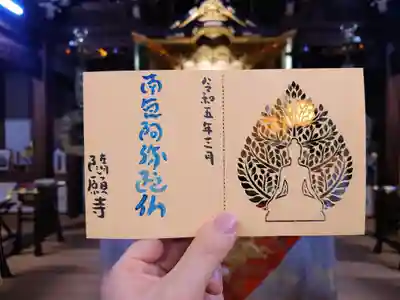 令和五年十二月
南無阿弥陀仏
隨願寺